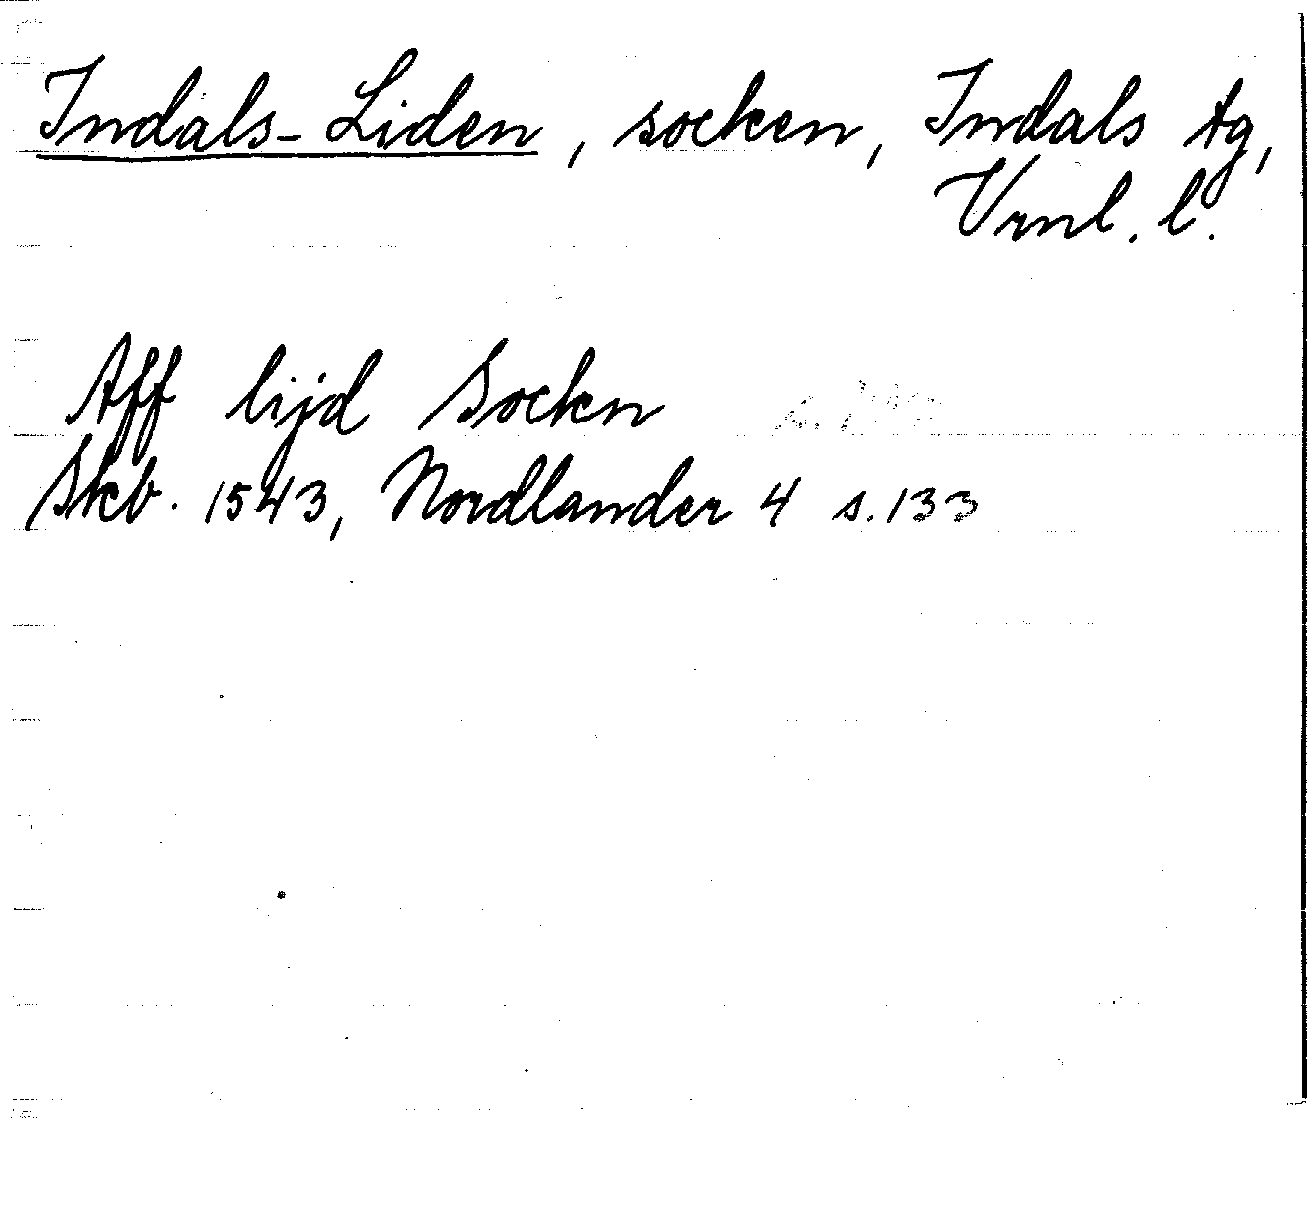 Indals-Liden, socken, Indals tg,
Vrnl. l.
Aff lijd Sockn
Skb. 1543, Nordlander 4 s. 133